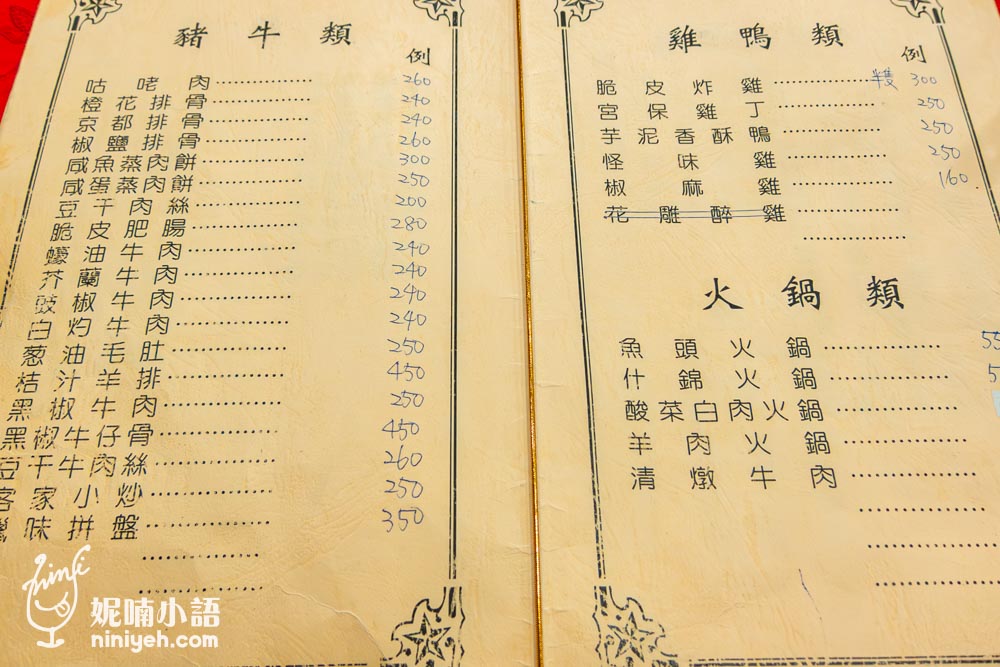 豬牛類
例
咕咾肉 260
橙花排骨 240
京都排骨 240
椒鹽排骨 260
咸魚蒸肉餅 300
咸蛋蒸肉餅 250
豆干肉絲 200
脆皮肥腸 280
蠔油牛肉 240
芥蘭牛肉 240
豉椒牛肉 240
白灼牛肉 240
葱油毛肚 250
桔汁羊排 450
黑椒牛肉 250
黑椒牛仔骨 450
豆干牛肉絲 260
客家小炒 250
味拼盤 350
雞鴨類
例
脆皮炸雞 半隻 300
宮保雞丁 250
芋泥香酥鴨 250
怪味雞 250
椒麻雞 160
花雕醉雞
火鍋類
魚頭火鍋 55
什錦火鍋 5
酸菜白肉火鍋
羊肉火鍋
清燉牛肉
ninifi
妮喃小語
niniyeh.com